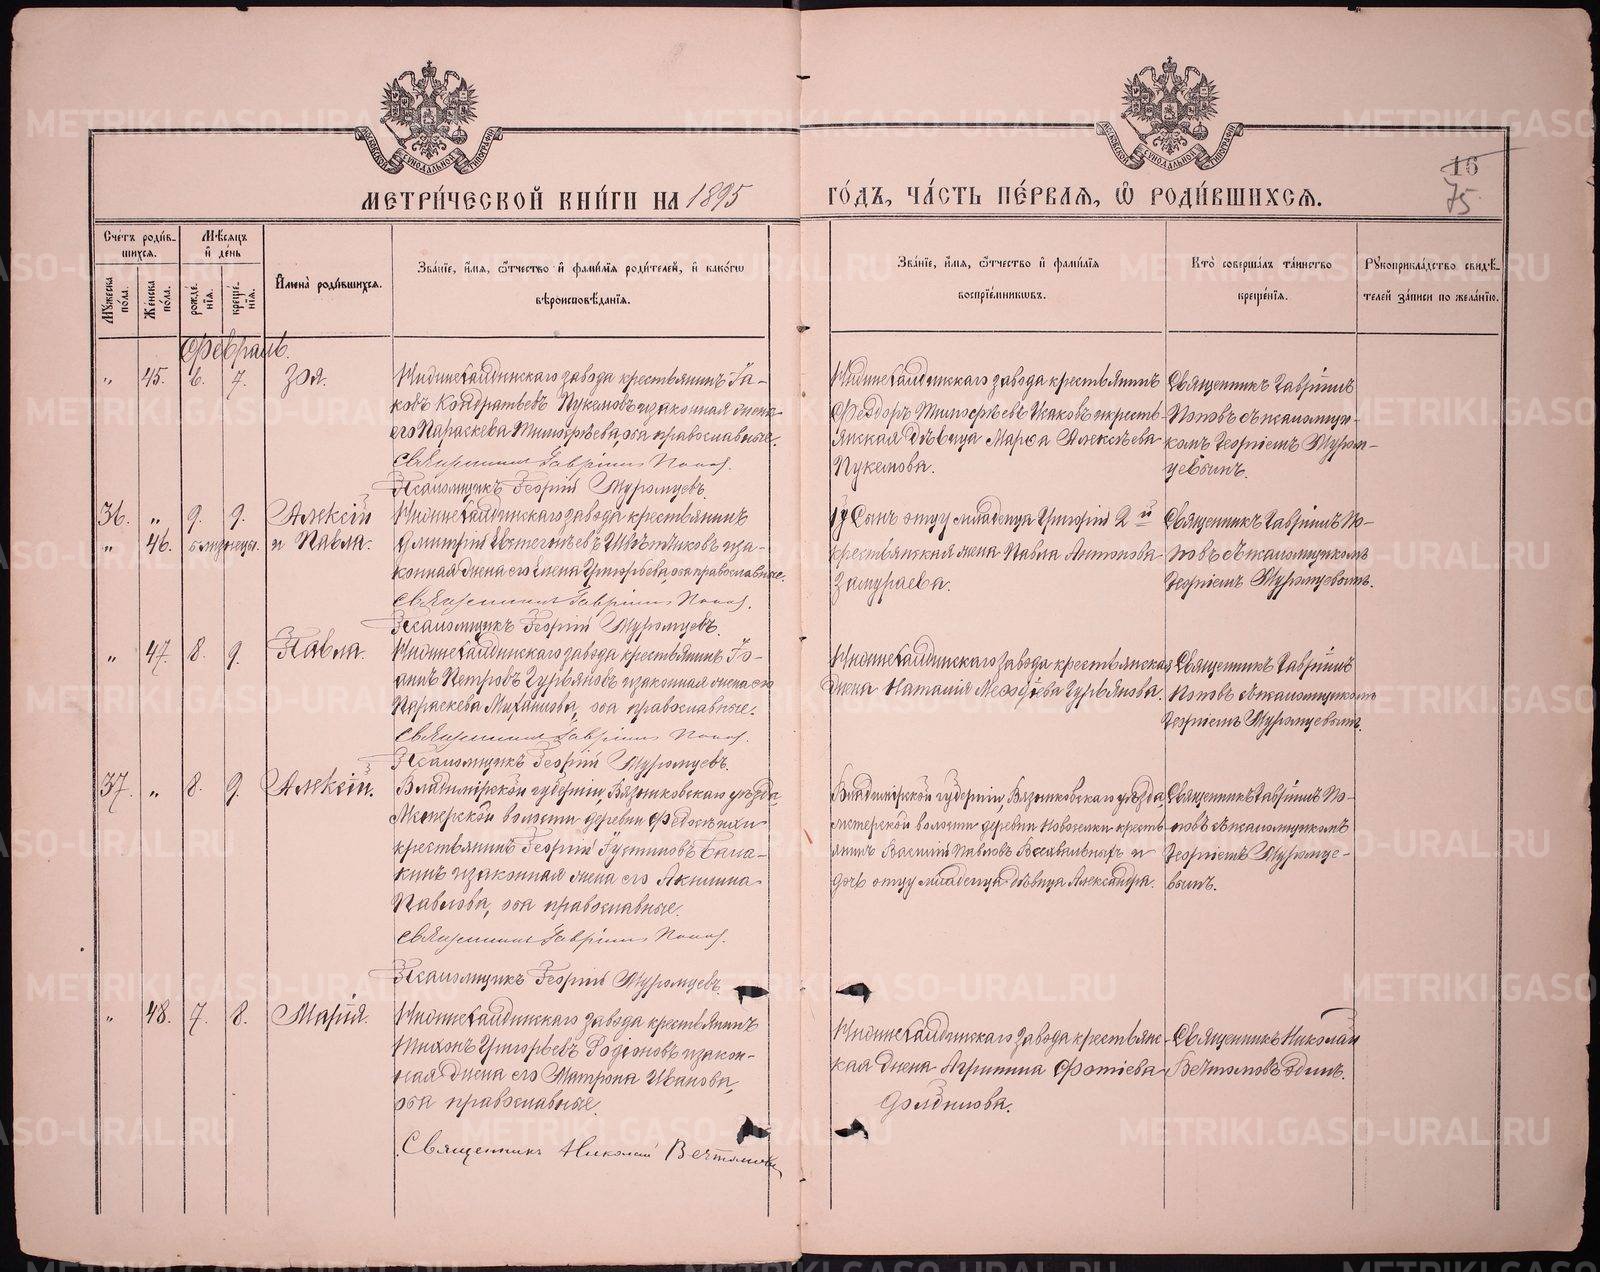 МОСКОВСКОЙ СѴНОДАЛЬНОЙ ТИПОГРАФІИ
МОСКОВСКОЙ СѴНОДАЛЬНОЙ ТИПОГРАФІИ
16
75
МЕТРИ́ЧЕСКОЙ КНИ́ГИ НА 1895 ГО́ДЪ, ЧА́СТЬ ПЕ́РВАЯ, Ѡ РОДИ́ВШИХСЯ.
Сче́тъ роди́вшихся.
Му́жеска по́ла.
Же́нска по́ла.
Мѣ́сяцъ и҆ де́нь
рожде́нїя.
креще́нїя.
И҆мена̀ роди́вшихся.
Зва́нїе, и҆́мя, ѻ҆́тчество и҆ фами́лїя роди́телей, и҆ како́гѡ вѣроисповѣ́данїя.
Зва́нїе, и҆́мя, ѻ҆́тчество и҆ фами́лїя воспрїе́мникѡвъ.
Кто̀ соверша́лъ та́инство креще́нїя.
Рꙋкоприкла́дство свидѣ́телей за́писи по жела́нїю.
Февраль.
„ 45. 6. 7. Зоя.
Нижнесалдинскаго завода крестьянинъ Іа-
ковъ Кондратьевъ Пукемовъ и законная жена
его Параскева Тимофѣева, оба православные.
Священникъ Гавріилъ Поповъ.
Псаломщикъ Георгій Муромцевъ.
Нижнесалдинскаго завода крестьянинъ
Феодоръ Тимофѣевъ Исаковъ и кресть-
янская дѣвица Марѳа Алексѣева
Пукемова.
Священникъ Гавріилъ
Поповъ съ псаломщи-
комъ Георгіемъ Муром-
цевымъ.
36. „ 9. 9. Алексій
„ 46. близнецы. и Павла.
Нижнесалдинскаго завода крестьянинъ
Димитрій Евстегнѣевъ Цвѣтиковъ и за-
конная жена его Елена Григорьева, оба православные.
Священникъ Гавріилъ Поповъ.
Псаломщикъ Георгій Муромцевъ.
Сынъ отцу младенца Григорій 2й
крестьянская жена Павла Антонова
Замураева.
Священникъ Гавріилъ По-
повъ съ псаломщикомъ
Георгіемъ Муромцевымъ.
„ 47. 8. 9. Павла.
Нижнесалдинскаго завода крестьянинъ Іо-
аннъ Петровъ Гурьяновъ и законная жена его
Параскева Михаилова, оба православные.
Священникъ Гавріилъ Поповъ.
Псаломщикъ Георгій Муромцевъ.
Нижнесалдинскаго завода крестьянская
жена Наталія Меѳодіева Гурьянова.
Священникъ Гавріилъ
Поповъ съ псаломщикомъ
Георгіемъ Муромцевымъ.
37. „ 8. 9. Алексій.
Владимірской губерніи, Вязниковскаго уѣзда,
Мстерской волости деревни Федосѣихи
крестьянинъ Георгій Іустиновъ Бала-
кинъ и законная жена его Акилина
Павлова, оба православные.
Священникъ Гавріилъ Поповъ.
Псаломщикъ Георгій Муромцевъ.
Владимірской губерніи, Вязниковскаго уѣзда
Мстерской волости деревни Новоселки кресть-
янинъ Василій Павловъ и
дочь отцу младенца дѣвица Александра.
Священникъ Гавріилъ По-
повъ съ псаломщикомъ
Георгіемъ Муромце-
вымъ.
„ 48. 7. 8. Марія.
Нижнесалдинскаго завода крестьянинъ
Тихонъ Григорьевъ Родіоновъ и закон-
ная жена его Матрона Иванова,
оба православные.
Священникъ Николай Вечтомовъ
Нижнесалдинскаго завода крестьянс-
кая жена Агрипина Фотіева
Священникъ Николай
Вечтомовъ одинъ.